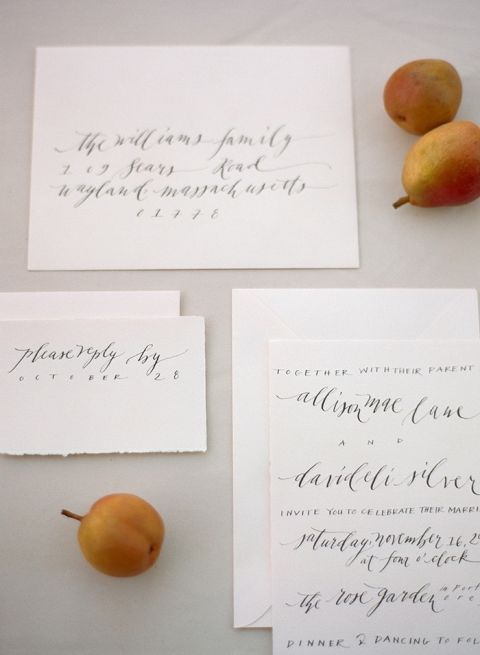 the williams family
1 09 Sears Road
wayland massachusetts
01778
please reply by
OCTOBER 28
TOGETHER WITH THEIR PARENT
allison mae lane
AND
david eli silver
INVITE YOU TO CELEBRATE THEIR MARRI
saturday, november 16, 2
at four o'clock
the rose garden in Port
ore
DINNER & DANCING TO FOL